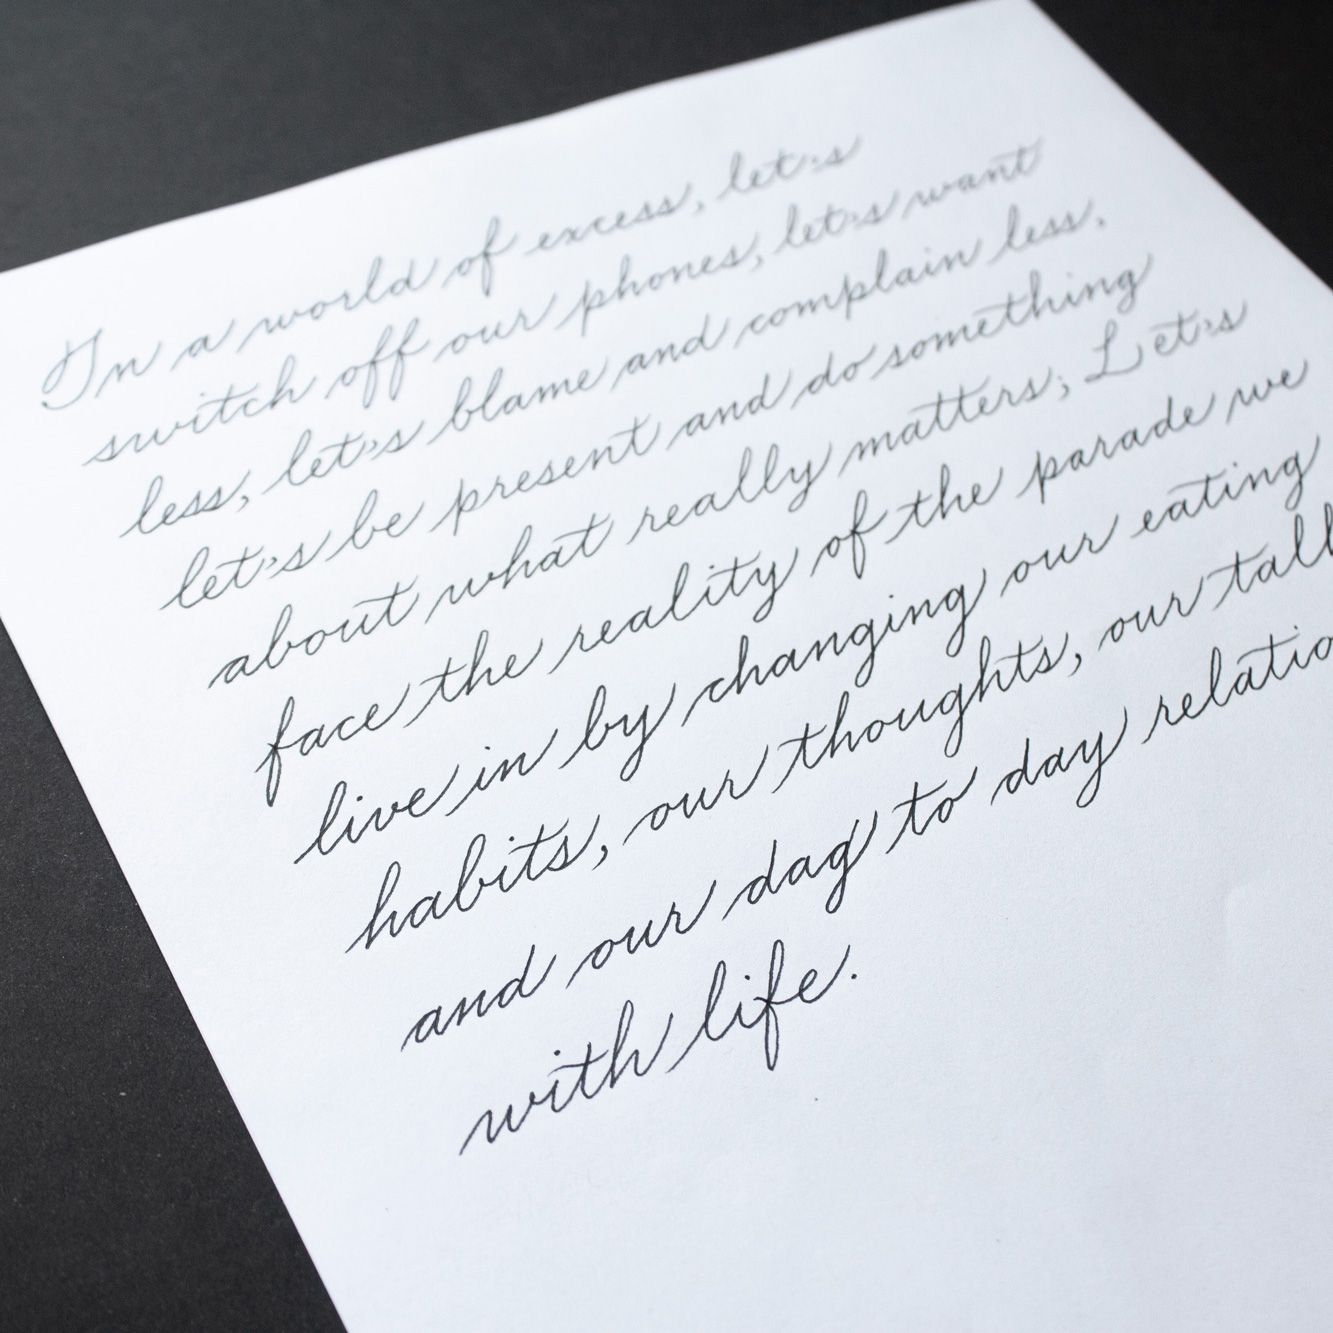 In a world of excess, let's
switch off our phones, let's want
less, let's blame and complain less.
let's be present and do something
about what really matters; Let's
face the reality of the parade we
live in by changing our eating
habits, our thoughts, our
and our day to day
with life.